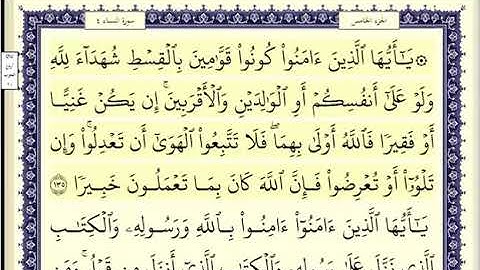 الجزء الخامس
سورة النساء ٤
۞ يَـٰٓأَيُّهَا ٱلَّذِينَ ءَامَنُوا۟ كُونُوا۟ قَوَّٰمِينَ بِٱلْقِسْطِ شُهَدَآءَ لِلَّهِ
وَلَوْ عَلَىٰٓ أَنفُسِكُمْ أَوِ ٱلْوَٰلِدَيْنِ وَٱلْأَقْرَبِينَ ۚ إِن يَكُنْ غَنِيًّا
أَوْ فَقِيرًا فَٱللَّهُ أَوْلَىٰ بِهِمَا ۖ فَلَا تَتَّبِعُوا۟ ٱلْهَوَىٰٓ أَن تَعْدِلُوا۟ ۚ وَإِن
تَلْوُۥٓا۟ أَوْ تُعْرِضُوا۟ فَإِنَّ ٱللَّهَ كَانَ بِمَا تَعْمَلُونَ خَبِيرًا ١٣٥
يَـٰٓأَيُّهَا ٱلَّذِينَ ءَامَنُوٓا۟ ءَامِنُوا۟ بِٱللَّهِ وَرَسُولِهِۦ وَٱلْكِتَـٰبِ
ٱلَّذِى نَزَّلَ عَلَىٰ رَسُولِهِۦ وَٱلْكِتَـٰبِ ٱلَّذِىٓ أَنزَلَ مِن قَبْلُ ۚ وَمَن